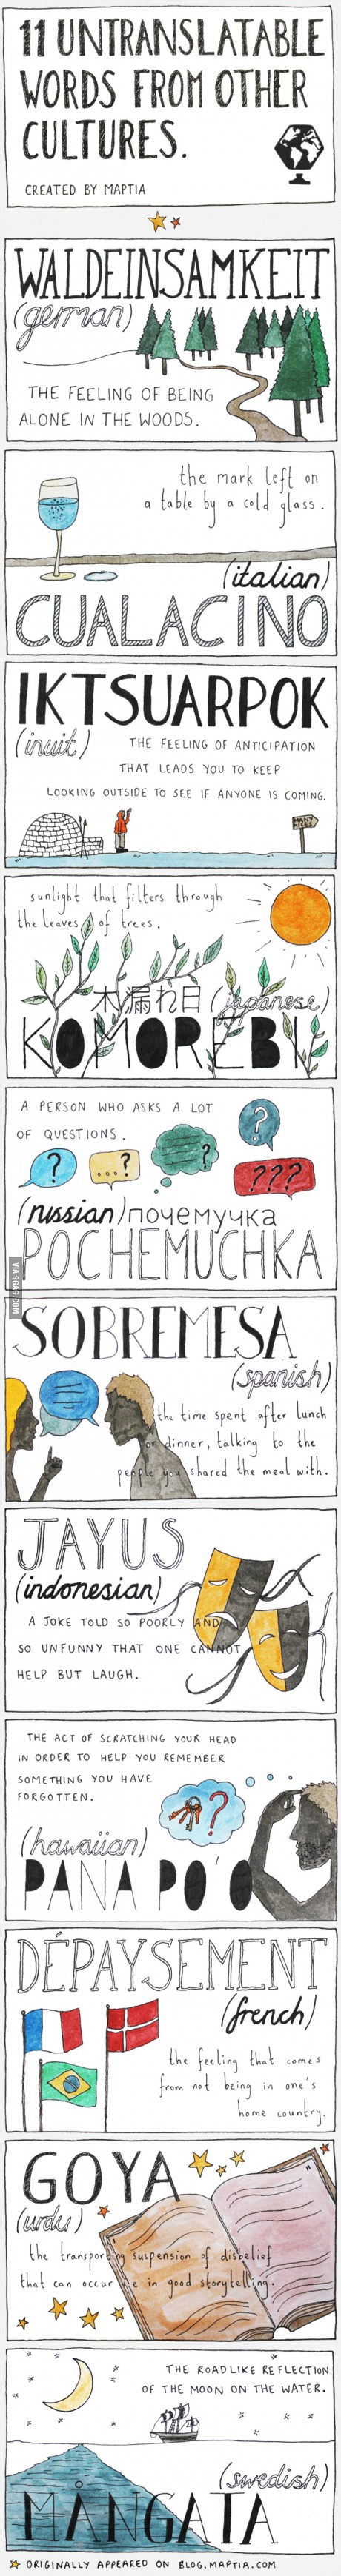 11 UNTRANSLATABLE
WORDS FROM OTHER
CULTURES.
CREATED BY MAPTIA
WALDEINSAMKEIT
(german)
THE FEELING OF BEING
ALONE IN THE WOODS.
the mark left on
a table by a cold glass.
(italian)
CUALACINO
IKTSUARPOK
(inuit)
THE FEELING OF ANTICIPATION
THAT LEADS YOU TO KEEP
LOOKING OUTSIDE TO SEE IF ANYONE IS COMING.
MANY
MILES
sunlight that filters through
the leaves of trees.
木漏れ日 (japanese)
KOMOREBI
A PERSON WHO ASKS A LOT
OF QUESTIONS.
?
?
...?
?
???
(russian) почемучка
POCHEMUCHKA
VIA 9GAG.COM
SOBREMESA
(spanish)
the time spent after lunch
or dinner, talking to the
people you shared the meal with.
JAYUS
(indonesian)
A JOKE TOLD SO POORLY AND
SO UNFUNNY THAT ONE CANNOT
HELP BUT LAUGH.
THE ACT OF SCRATCHING YOUR HEAD
IN ORDER TO HELP YOU REMEMBER
SOMETHING YOU HAVE
FORGOTTEN.
?
(hawaiian)
PANA PO'O
DÉPAYSEMENT
(french)
the feeling that comes
from not being in one's
home country.
GOYA
(urdu)
the transporting suspension of disbelief
that can occur in good storytelling.
THE ROADLIKE REFLECTION
OF THE MOON ON THE WATER.
(swedish)
MÅNGATA
ORIGINALLY APPEARED ON BLOG.MAPTIA.COM